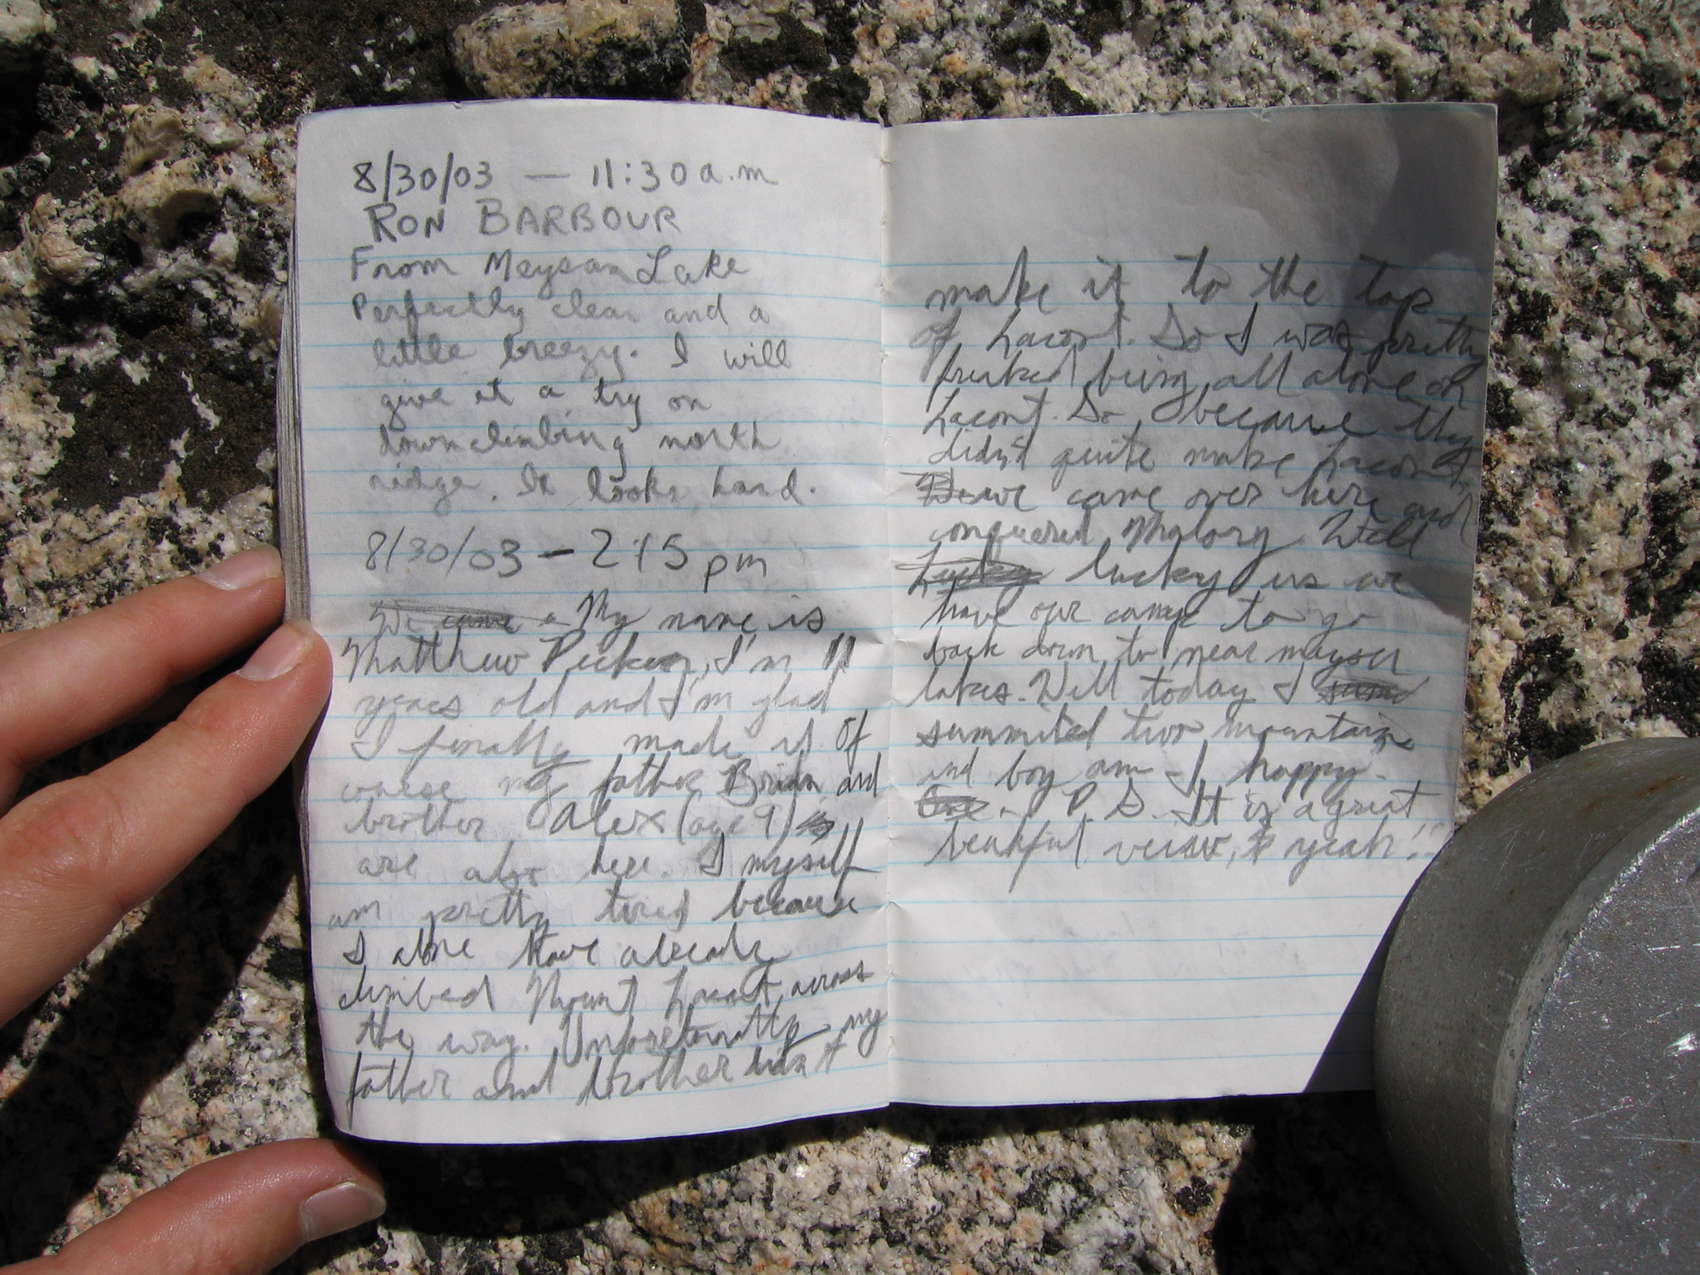 8/30/03 — 11:30 a.m
RON BARBOUR
From Meysan Lake
Perfectly clear and a
little breezy. I will
give it a try on
downclimbing north
ridge. It looks hard.
8/30/03 — 2:15 pm
We came a My name is
Matthew I'm 11
years old and I'm glad
I finally made it Of
corse my father Brian and
brother Alex (age 9)
are also here. I myself
am pretty tired because
I alone have already
climbed Mount Lacont across
the way. Unforetunatly my
father and brother didn't
make it to the top
of Lacont. So I was pretty
freaked being all alone on
Lacont. So because they
didn't quite make Lacont,
we came over here and
conquered Malory. Well
Lucky lucky us we
have our camp to go
back down to near maysen
lakes. Well today I
summited two mountains
and boy am I happy.
P.S. It is a great
veiw, yeah!